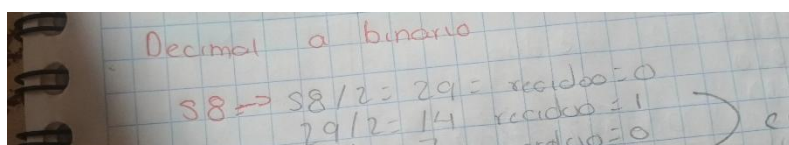 Decimal a binario
58 => 58/2 = 29 = reciduo = 0
29/2 = 14 reciduo = 1
=0